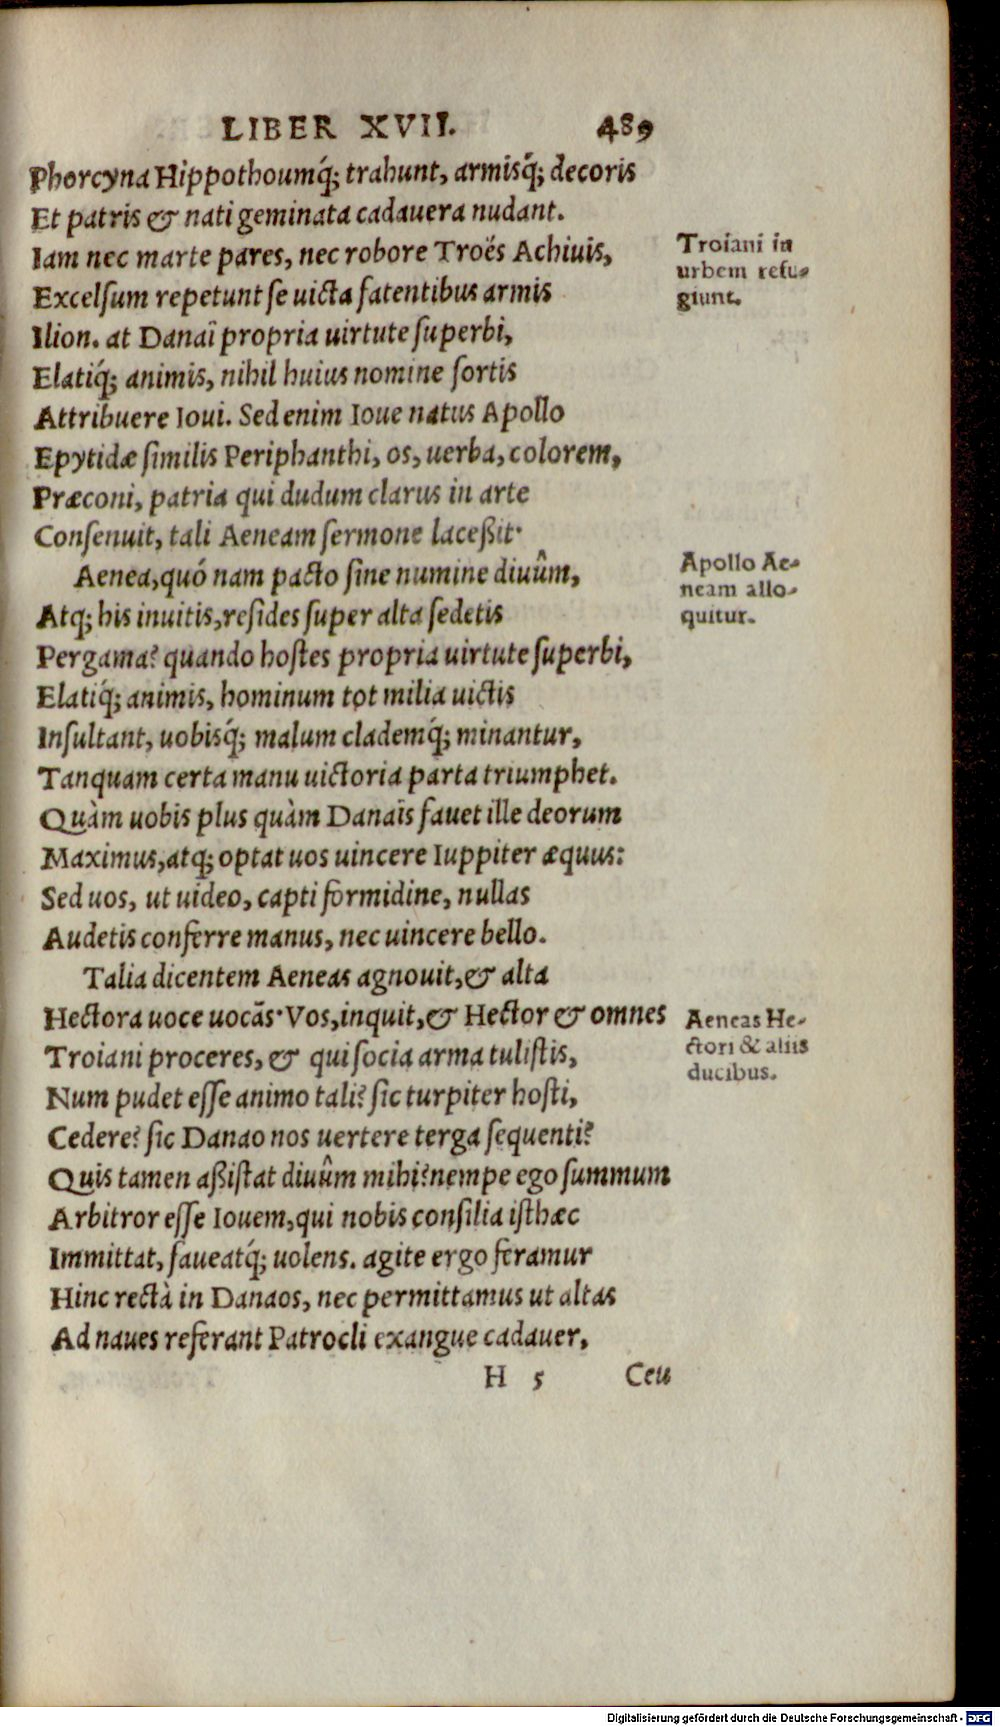 LIBER XVII. 489
Phorcyna Hippothoumq́; trahunt, armisq́; decoris
Et patris & nati geminata cadauera nudant.
Iam nec marte pares, nec robore Troës Achiuis,
Troiani in
urbem refu-
giunt.
Excelsum repetunt se uicta fatentibus armis
Ilion. at Danaî propria uirtute superbi,
Elatiq́; animis, nihil huius nomine sortis
Attribuere Ioui. Sed enim Ioue natus Apollo
Epytidæ similis Periphanthi, os, uerba, colorem,
Præconi, patria qui dudum clarus in arte
Consenuit, tali Aeneam sermone laceßit·
Aenea, quó nam pacto sine numine diuûm,
Apollo Ae-
neam allo-
quitur.
Atq; his inuitis, resides super alta sedetis
Pergama? quando hostes propria uirtute superbi,
Elatiq́; animis, hominum tot milia uictis
Insultant, uobisq́; malum clademq́; minantur,
Tanquam certa manu uictoria parta triumphet.
Quàm uobis plus quàm Danaîs fauet ille deorum
Maximus, atq; optat uos uincere Iuppiter æquus:
Sed uos, ut uideo, capti formidine, nullas
Audetis conferre manus, nec uincere bello.
Talia dicentem Aeneas agnouit, & alta
Hectora uoce uocãs· Vos, inquit, & Hector & omnes
Aeneas He-
ctori & aliis
ducibus.
Troiani proceres, & qui socia arma tulistis,
Num pudet esse animo tali? sic turpiter hosti,
Cedere? sic Danao nos uertere terga sequenti?
Quis tamen aßistat diuûm mihi? nempe ego summum
Arbitror esse Iouem, qui nobis consilia isthæc
Immittat, faueatq́; uolens. agite ergo feramur
Hinc rectà in Danaos, nec permittamus ut altas
Ad naues referant Patrocli exangue cadauer,
H 5 Ceu
Digitalisierung gefördert durch die Deutsche Forschungsgemeinschaft - DFG